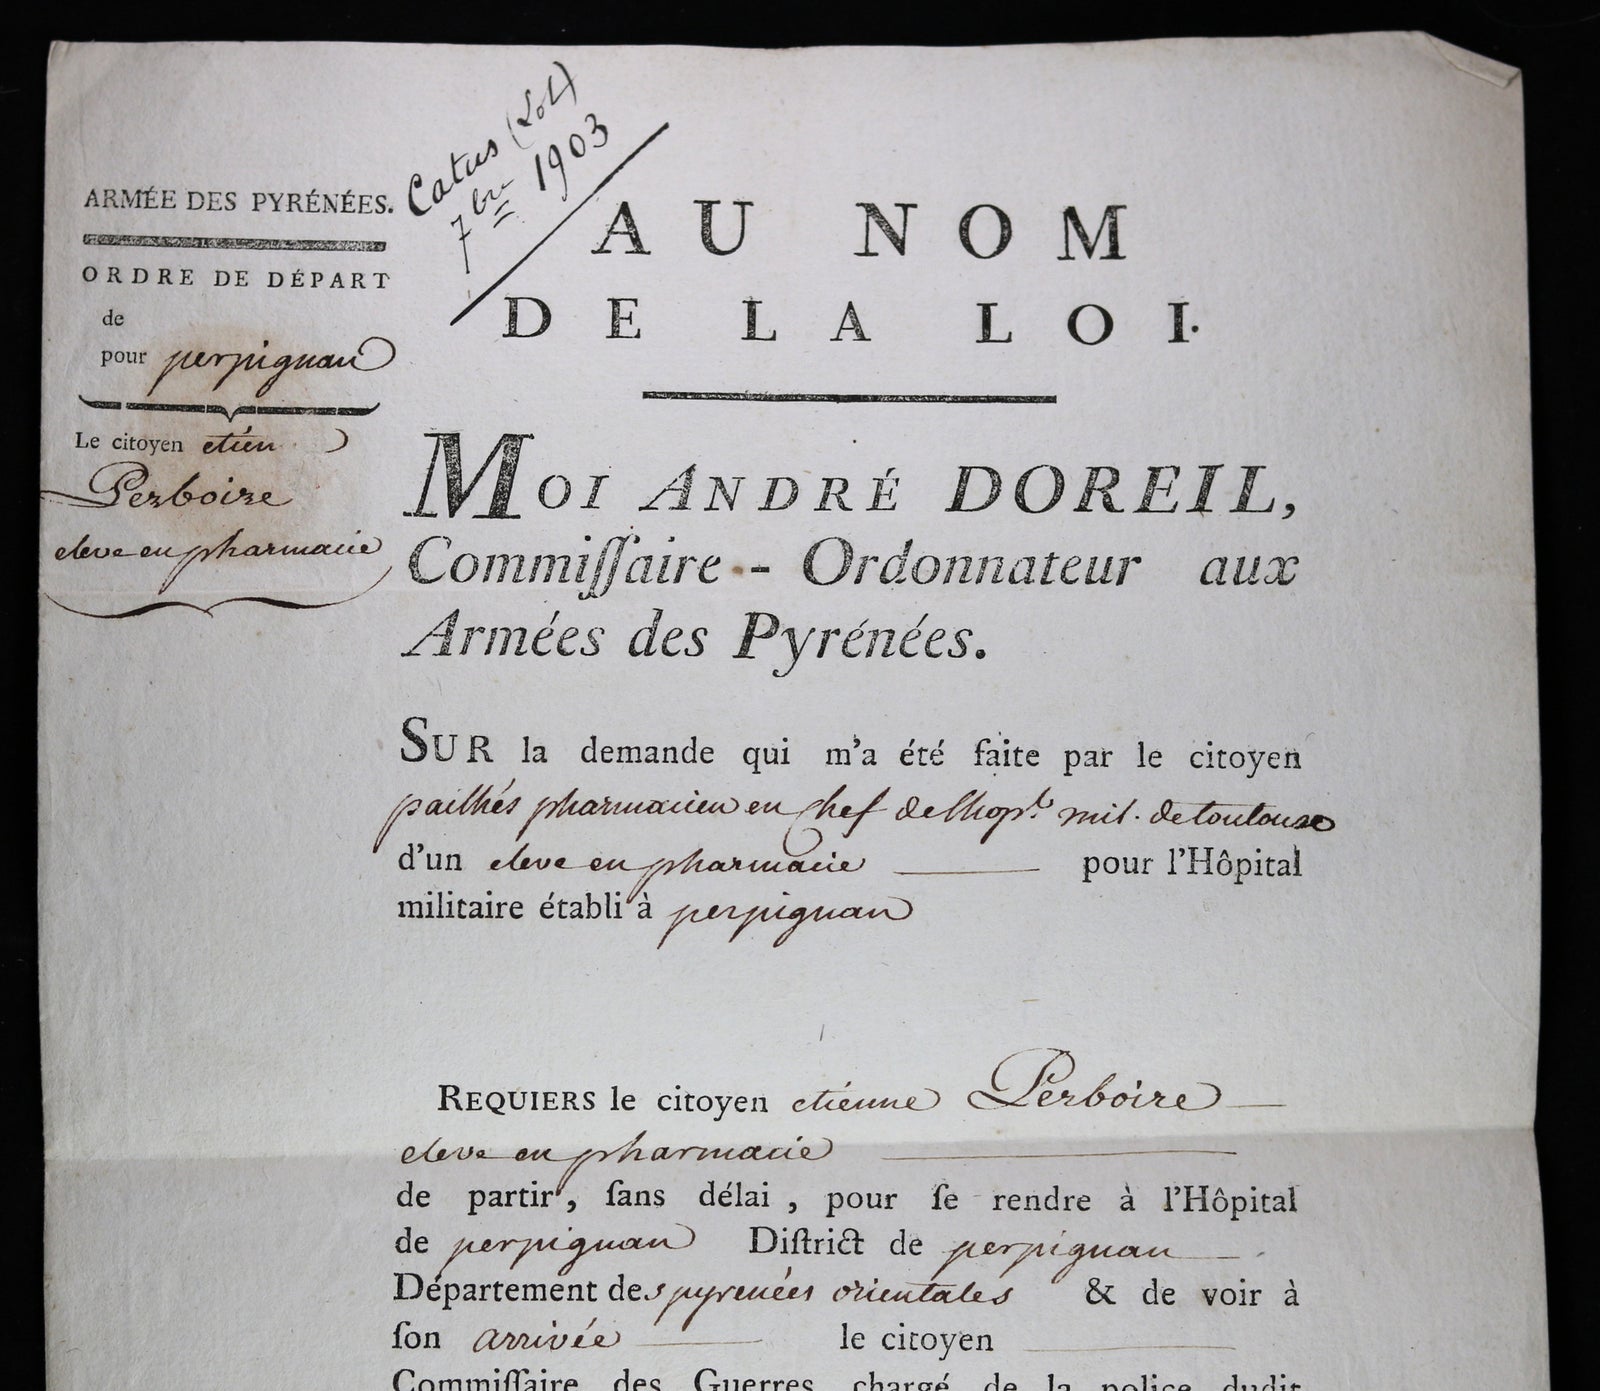 Catus (Lot)
7bre 1903
ARMÉE DES PYRÉNÉES.
ORDRE DE DÉPART
de
pour perpignan
Le citoyen etien
Perboire
eleve en pharmacie
AU NOM
DE LA LOI.
MOI ANDRÉ DOREIL,
Commiſſaire - Ordonnateur aux
Armées des Pyrénées.
SUR la demande qui m'a été faite par le citoyen
pailhés pharmacien en chef de lhopl. mil. de toulouse
d'un eleve en pharmacie pour l'Hôpital
militaire établi à perpignan
REQUIERS le citoyen etienne Perboire
eleve en pharmacie
de partir, ſans délai, pour ſe rendre à l'Hôpital
de perpignan Diſtrict de perpignan
Département des pyrenées orientales & de voir à
ſon arrivée le citoyen
Commiſſaire des Guerres chargé de la police dudit